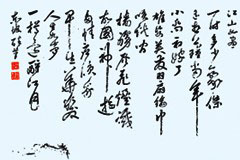 江山如画
一时多少豪杰
遥想公瑾当年
小乔初嫁了
雄姿英发羽扇纶巾
谈笑间
樯橹灰飞烟灭
故国神游
多情应笑我
早生华发
一樽还酹江月